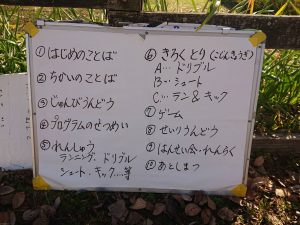 ①はじめのことば
②ちかいのことば
③じゅんびうんどう
④プログラムのせつめい
⑤れんしゅう
ランニング、ドリブル
シュート、キック…等
⑥きろくとり(こじんきょうぎ)
A…ドリブル
B…シュート
C…ラン&キック
⑦ゲーム
⑧せいりうんどう
⑨はんせい会・れんらく
⑩あとしまつ